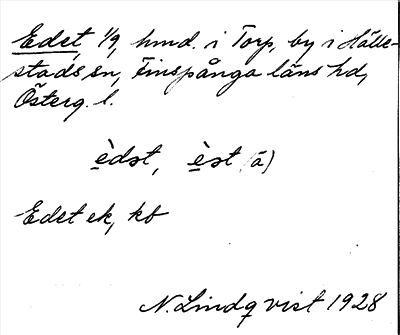 Edet, 1/9, hmd. i Torp, by i Hälle-
stads sn, Finspånga läns hd,
Österg. l.
èdst, èst (ā)
Edet ek, kb
N. Lindqvist 1928